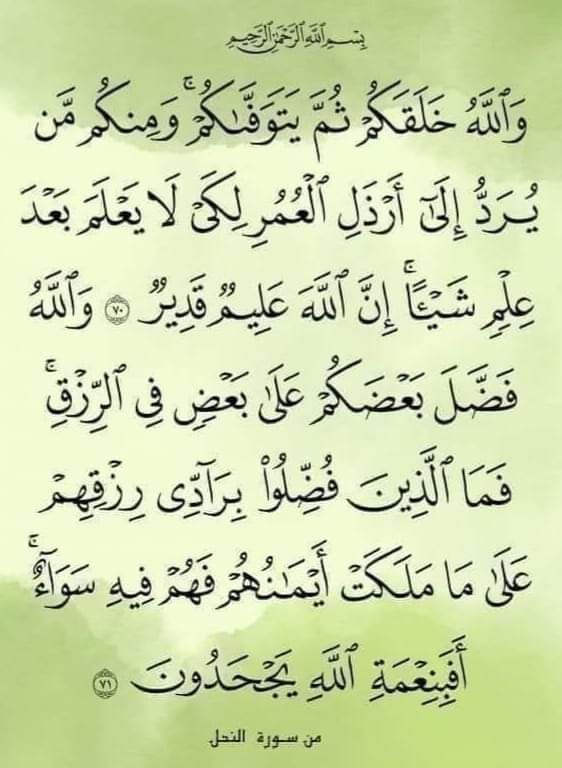 بِسْمِ ٱللَّهِ ٱلرَّحْمَٰنِ ٱلرَّحِيمِ
وَٱللَّهُ خَلَقَكُمْ ثُمَّ يَتَوَفَّىٰكُمْ ۚ وَمِنكُم مَّن
يُرَدُّ إِلَىٰٓ أَرْذَلِ ٱلْعُمُرِ لِكَىْ لَا يَعْلَمَ بَعْدَ
عِلْمٍ شَيْـًٔا ۚ إِنَّ ٱللَّهَ عَلِيمٌ قَدِيرٌ ٧٠ وَٱللَّهُ
فَضَّلَ بَعْضَكُمْ عَلَىٰ بَعْضٍ فِى ٱلرِّزْقِ ۚ
فَمَا ٱلَّذِينَ فُضِّلُوا۟ بِرَآدِّى رِزْقِهِمْ
عَلَىٰ مَا مَلَكَتْ أَيْمَٰنُهُمْ فَهُمْ فِيهِ سَوَآءٌ ۚ
أَفَبِنِعْمَةِ ٱللَّهِ يَجْحَدُونَ ٧١
من سورة النحل